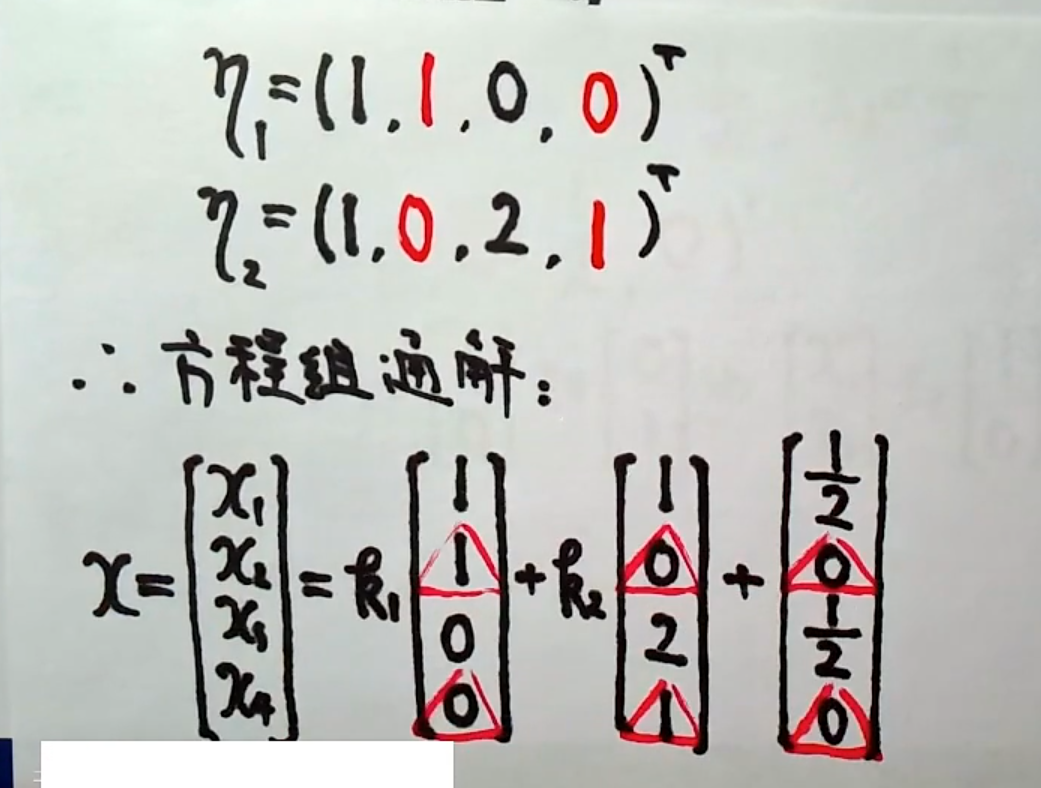 η₁=(1,1,0,0)ᵀ
η₂=(1,0,2,1)ᵀ
∴方程组通解:
x=[x₁ x₂ x₃ x₄]=k₁[1 1 0 0]+k₂[1 0 2 1]+[1/2 0 1/2 0]